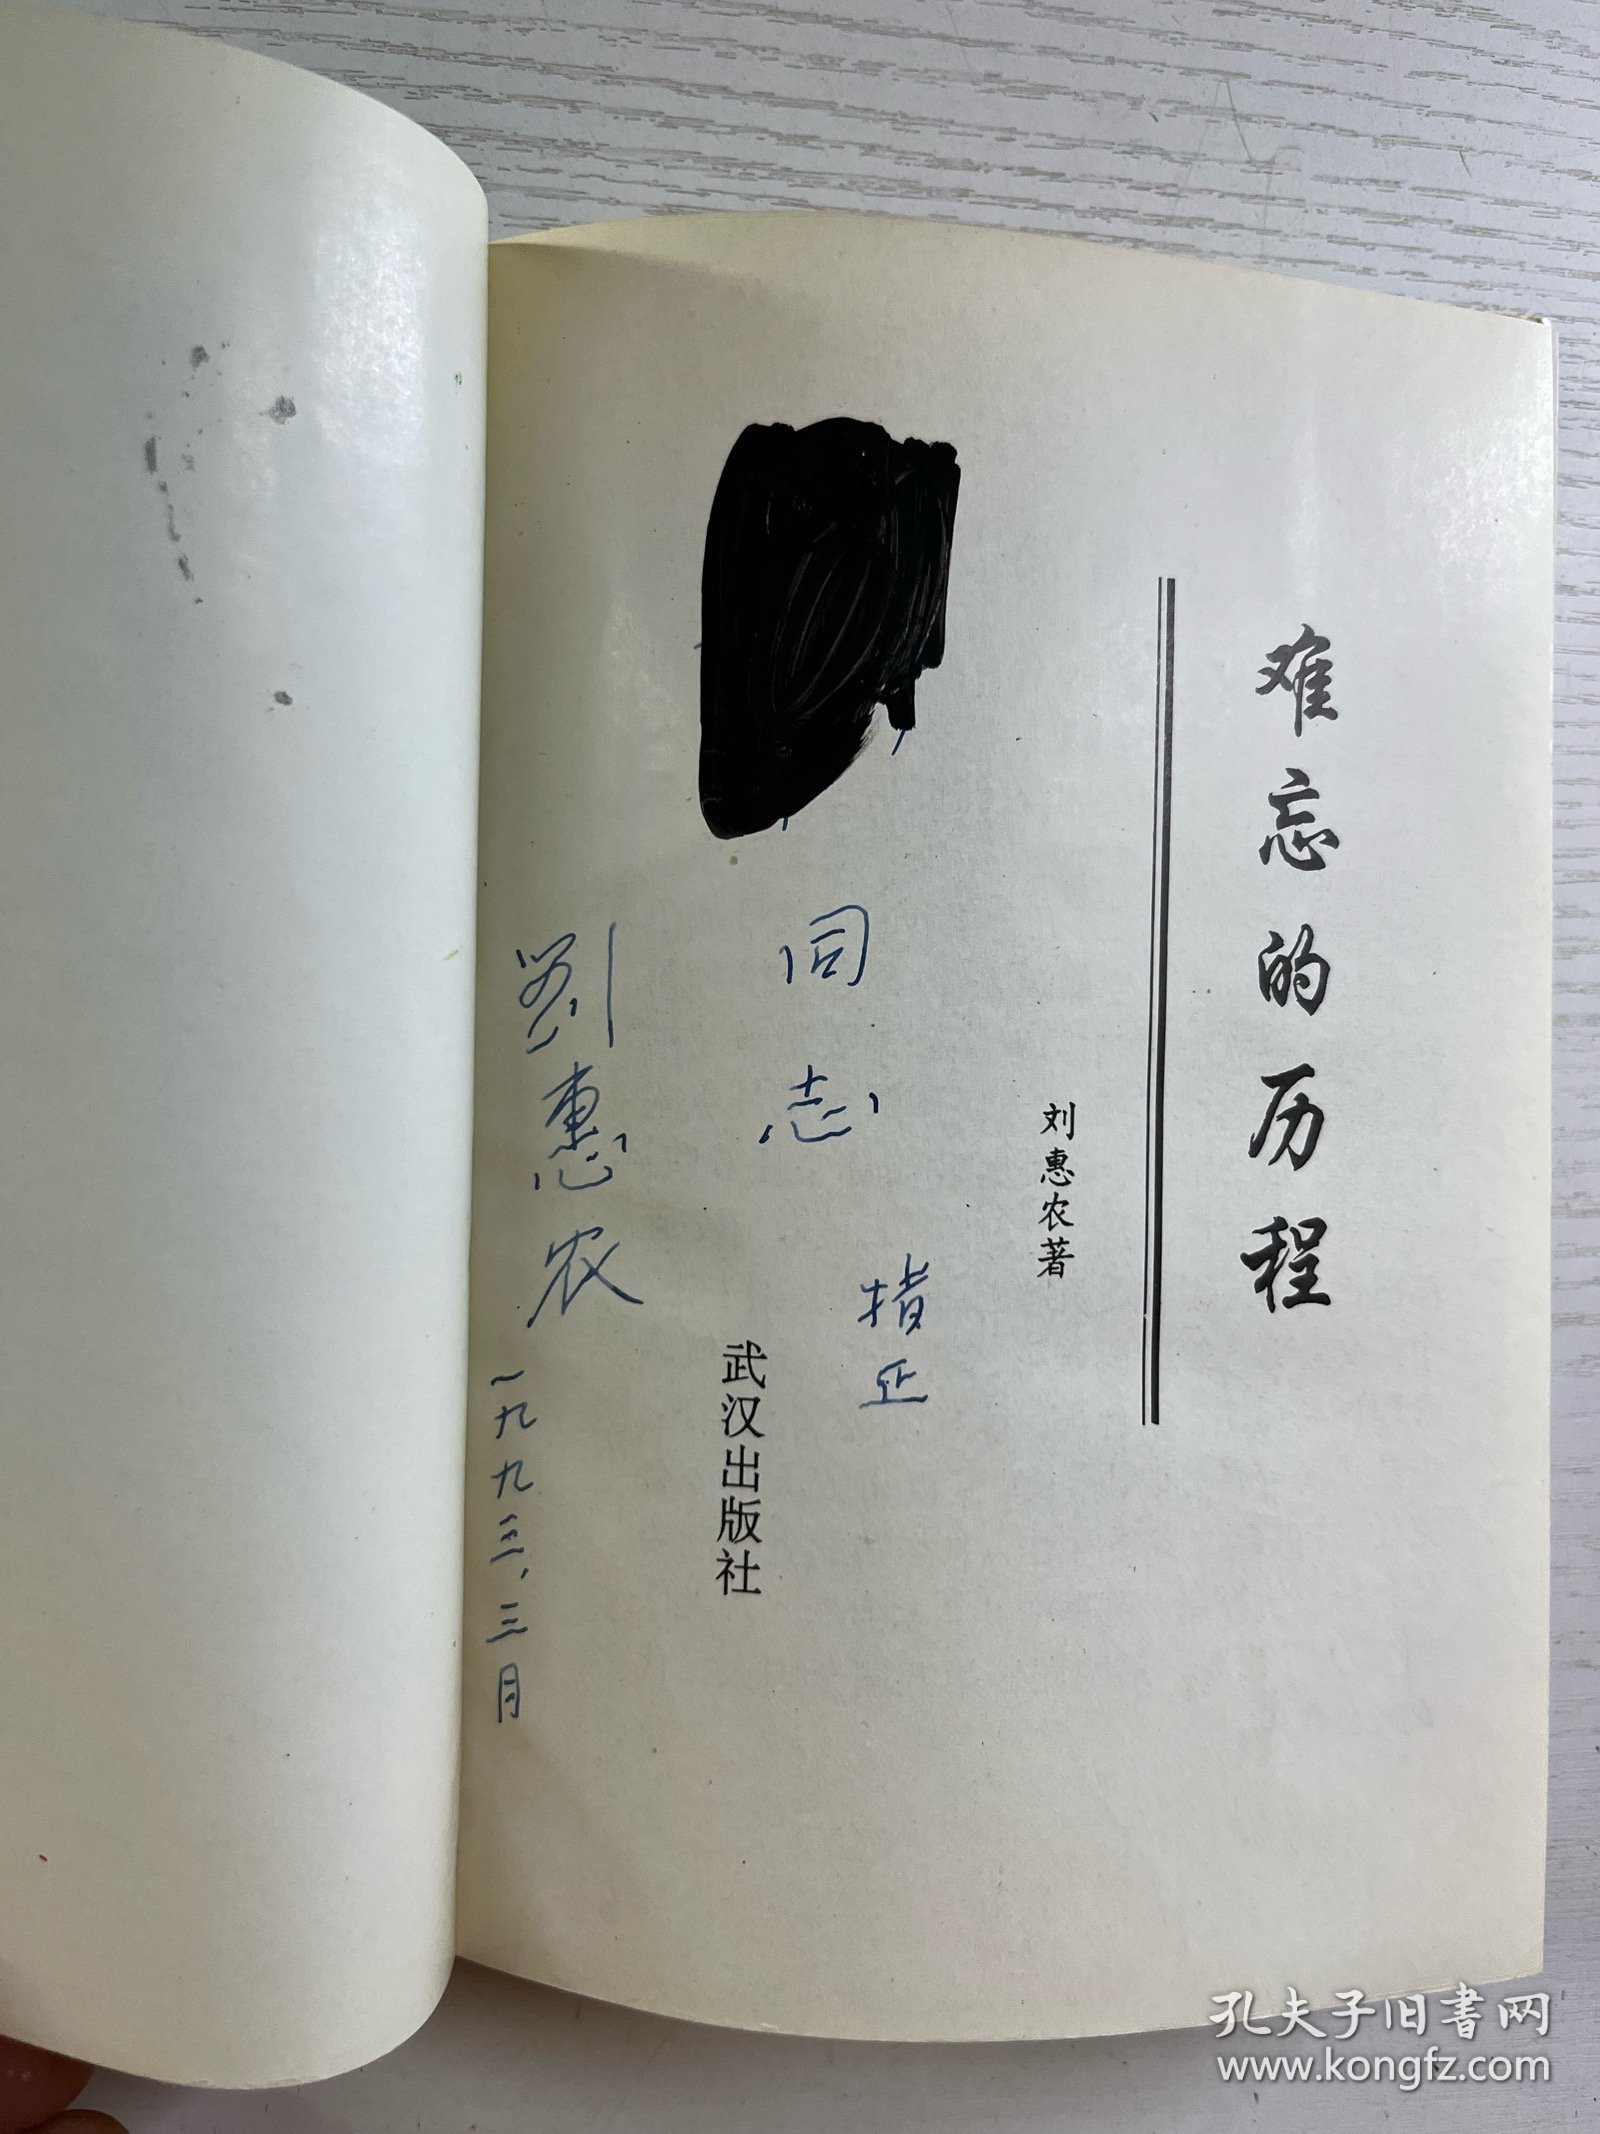 难忘的历程
刘惠农著
指正
同志
武汉出版社
劉惠农
一九九三、三月
孔夫子旧书网
www.kongfz.com